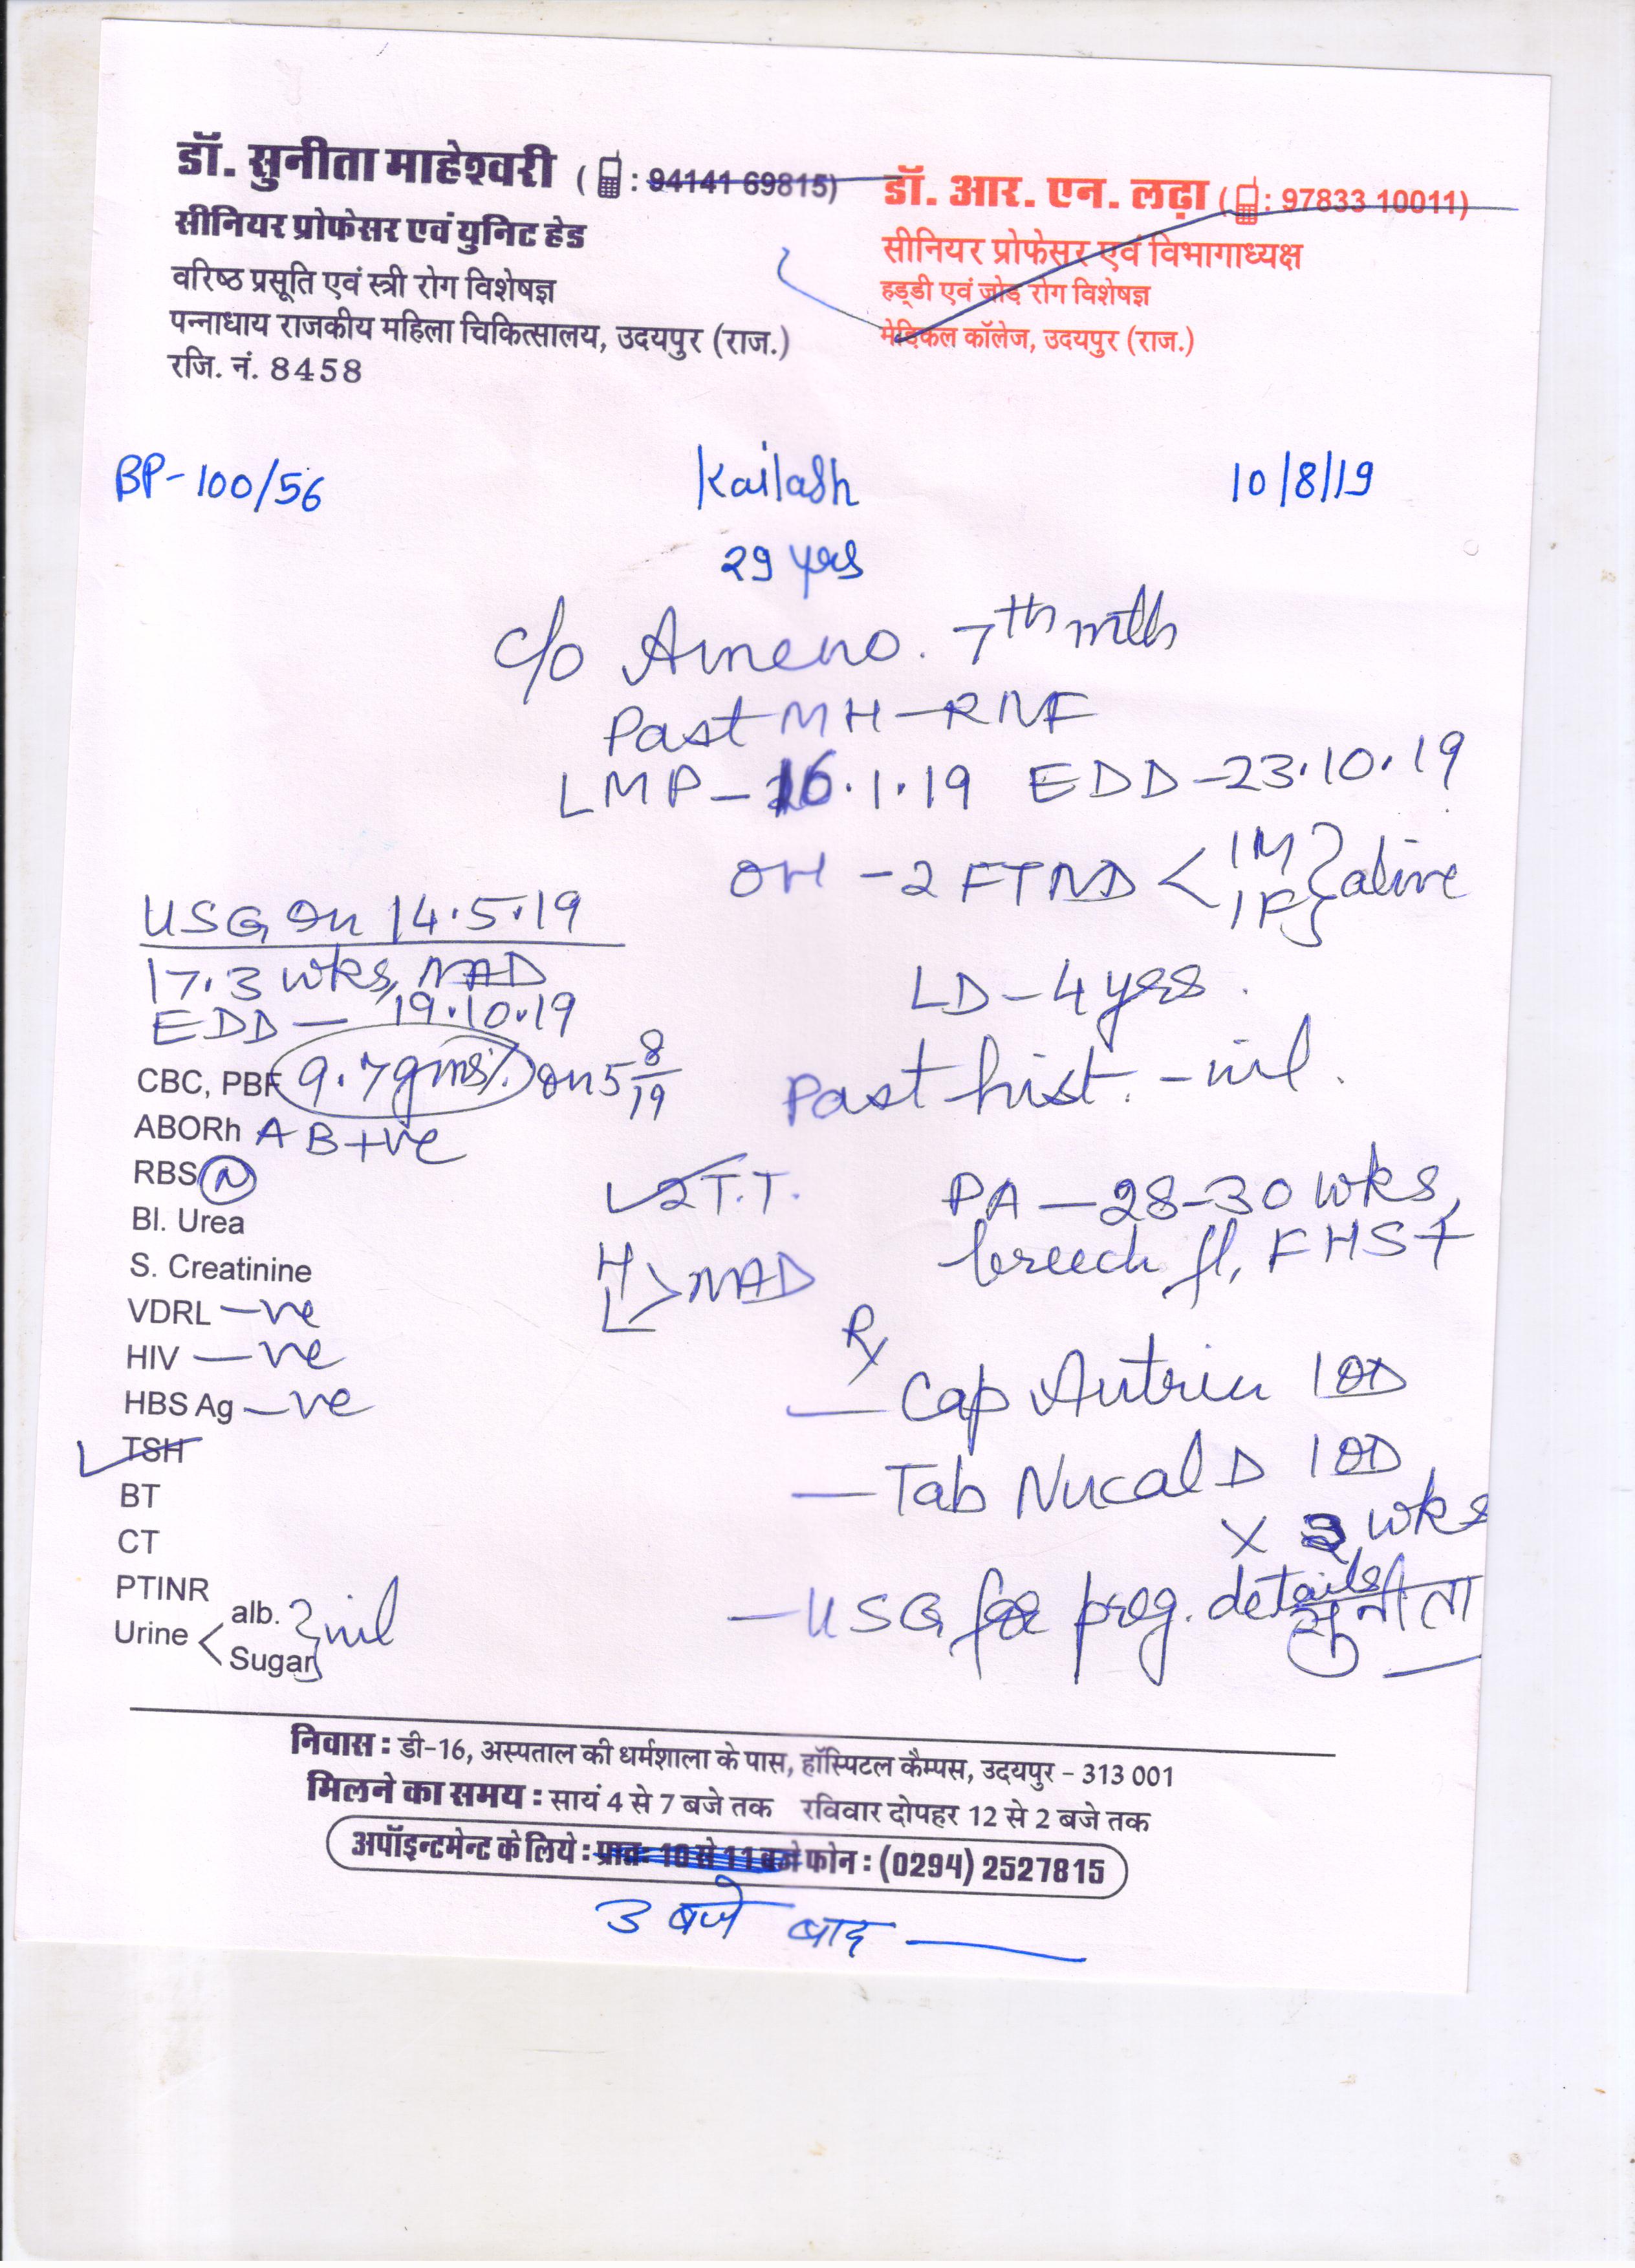 डॉ. सुनीता माहेश्वरी ( : 94141 69815)
सीनियर प्रोफेसर एवं युनिट हेड
वरिष्ठ प्रसूति एवं स्त्री रोग विशेषज्ञ
पन्नाधाय राजकीय महिला चिकित्सालय, उदयपुर (राज.)
रजि. नं. 8458
डॉ. आर. एन. लढ़ा ( : 97833 10011)
सीनियर प्रोफेसर एवं विभागाध्यक्ष
हड्डी एवं जोड़ रोग विशेषज्ञ
मेडिकल कॉलेज, उदयपुर (राज.)
BP-100/56 Kailash 10/8/19
29 yrs
c/o Ameno. 7th mth
Past MH-RNF
LMP-16.1.19 EDD-23.10.19
OH -2 FTND < 1M 1F } alive
LD-4 yrs.
Past hist.-nil.
USG on 14.5.19
17.3 wks, NAD
EDD - 19.10.19
CBC, PBF 9.7gms% on 5 8/19
ABORh AB+ve
RBS N
Bl. Urea
S. Creatinine
VDRL -ve
HIV -ve
HBS Ag -ve
TSH
BT
CT
PTINR
Urine < alb. Sugar } nil
2 T.T.
H L > NAD
PA-28-30 wks,
breech fl, FHS+
Rx
- Cap Autrin 1 OD
- Tab Nucal D 1 OD
x 3 wks
- USG for preg. details
सुनीता
निवास : डी-16, अस्पताल की धर्मशाला के पास, हॉस्पिटल कैम्पस, उदयपुर - 313 001
मिलने का समय : सायं 4 से 7 बजे तक रविवार दोपहर 12 से 2 बजे तक
अपॉइन्टमेन्ट के लिये : प्रातः 10 से 11 बजे फोन : (0294) 2527815
3 बजे बाद